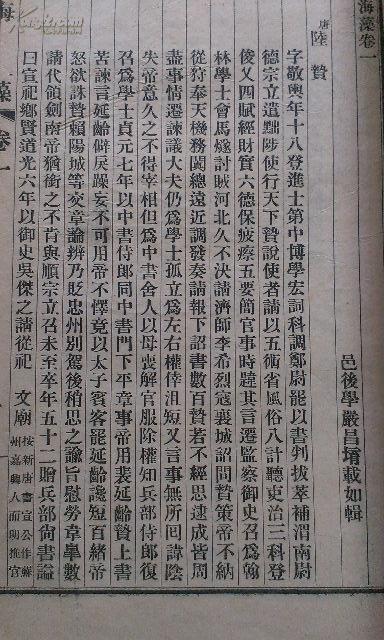 海藻卷一
邑後學嚴昌堉載如輯
唐
陸贄
字敬輿年十八登進士第中博學宏詞科調鄭尉罷以書判拔萃補渭南尉
德宗立遣黜陟使行天下贄說使者請以五術省風俗八計聽吏治三科登
俊乂四賦經財實六德保疲瘵五要簡官事時韙其言遷監察御史召為翰
林學士會馬燧討賊河北久不決請濟師李希烈寇襄城詔問贄策帝不納
從狩奉天機務闐總遠近調發奏請報下詔書數百贄若不經思逮成皆周
盡事情遷諫議大夫仍為學士孤立為左右權倖沮短又言事無所回諱陰
失帝意久之不得宰相但為中書舍人以母喪解官服除權知兵部侍郎復
召為學士貞元七年以中書侍郎同中書門下平章事帝用裴延齡贄上書
苦諫言延齡僻戾躁妄不可用帝不懌竟以太子賓客罷延齡讒短百緒帝
怒欲誅贄賴陽城等交章論辨乃貶忠州別駕後稍思之諭旨慰勞韋臯數
請代領劍南帝猶銜之不肯與順宗立召未至卒年五十二贈兵部尚書謚
曰宣祀鄉賢道光六年以御史吳傑之請從祀 文廟
按新唐書宣公作蘇
州嘉興人而明推官
海藻卷一